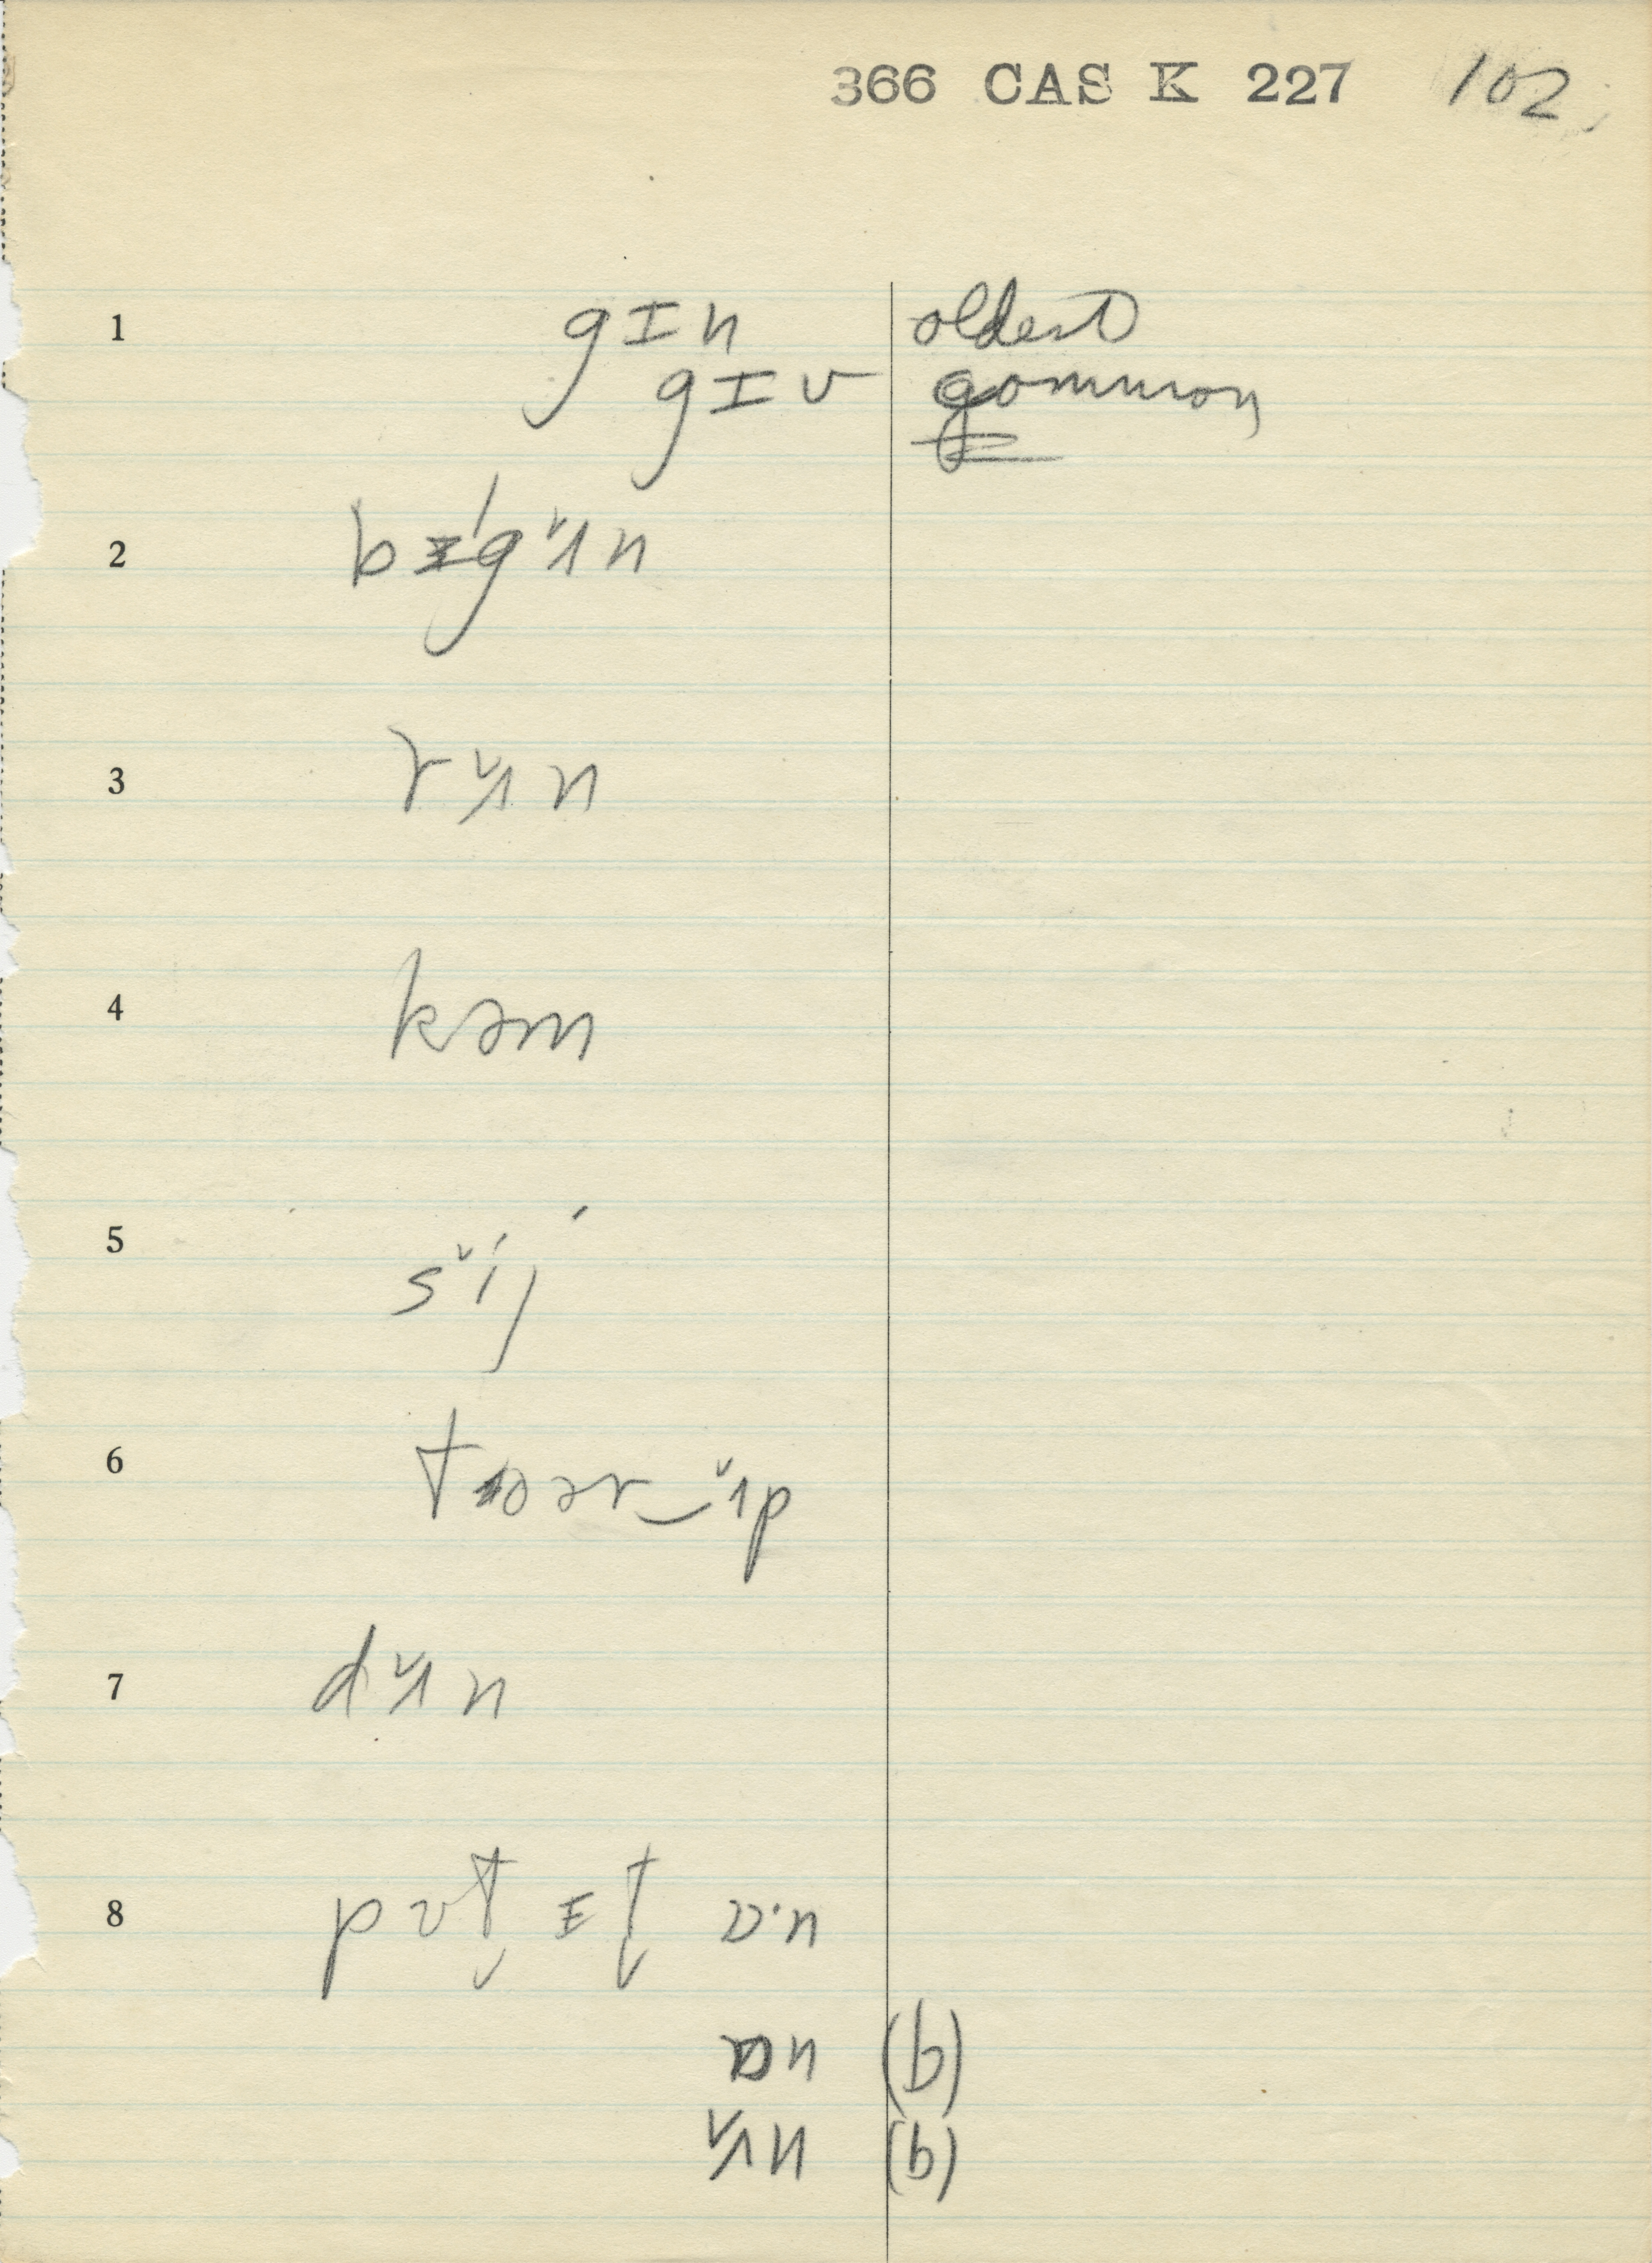 366 CAS K 227 102
1 gɪn oldest
gɪv common
2 bɪ´gʌ̌n
3 rʌ̌n
4 kəm
5 sǐj
6 ər‿ʌ̌p
7 dʌ̌n
8 pʊt̬ ɪt̬ ɒ·n
ɒn (b)
ʌ̌n (b)